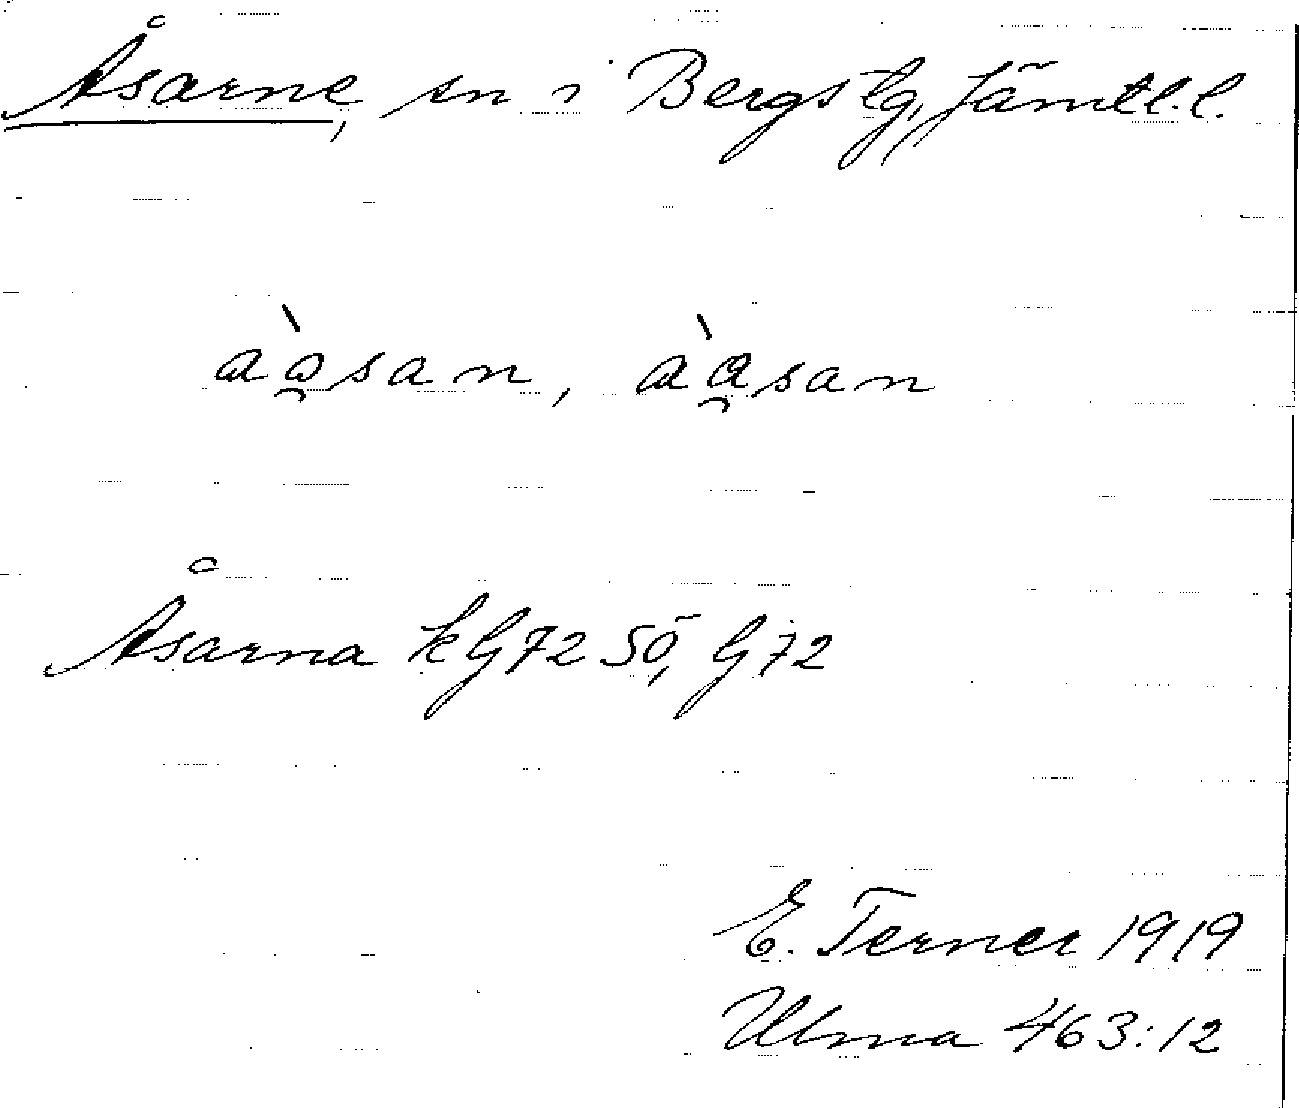 Åsarne, sn i Bergs tg, Jämtl. l.
åò̯san, åà̯san
Åsarna k G72 SÖ, G72
E. Terner 1919
Ulma 463:12